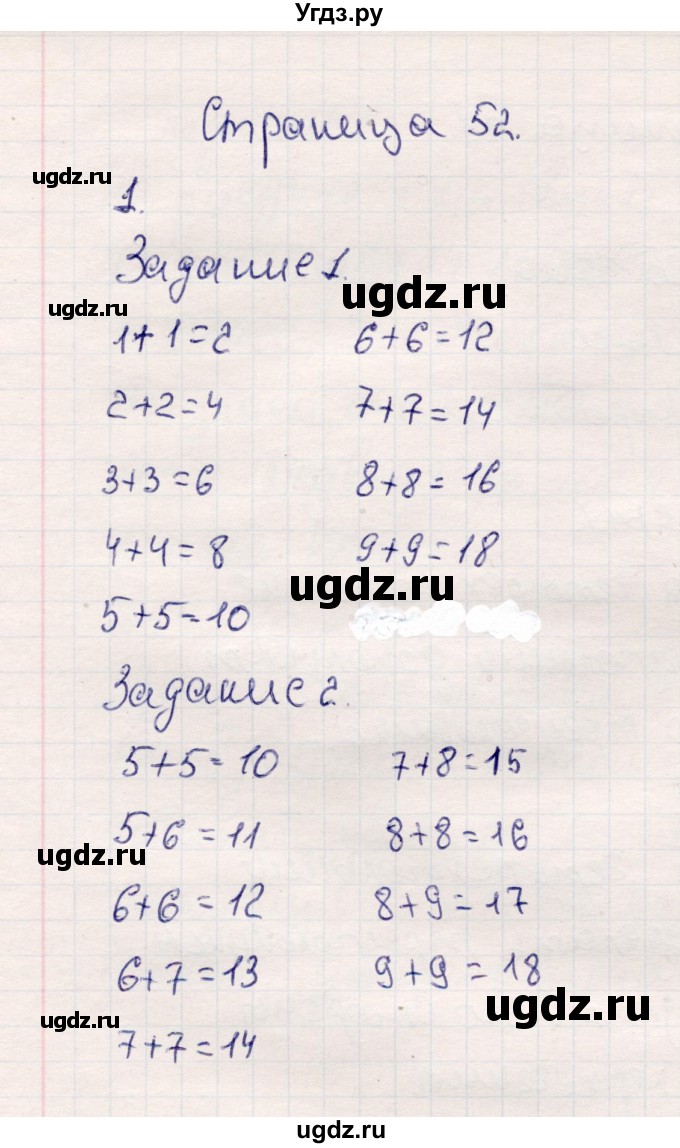 Угдз.ру
Страница 52.
ugdz.ru
1.
Задание 1.
ugdz.ru
ugdz.ru
1+1=2 6+6=12
2+2=4 7+7=14
3+3=6 8+8=16
4+4=8 9+9=18
ugdz.ru
5+5=10
Задание 2.
5+5=10 7+8=15
5+6=11 8+8=16
ugdz.ru
6+6=12 8+9=17
6+7=13 9+9=18
ugdz.ru
ugdz.ru
7+7=14
ugdz.ru